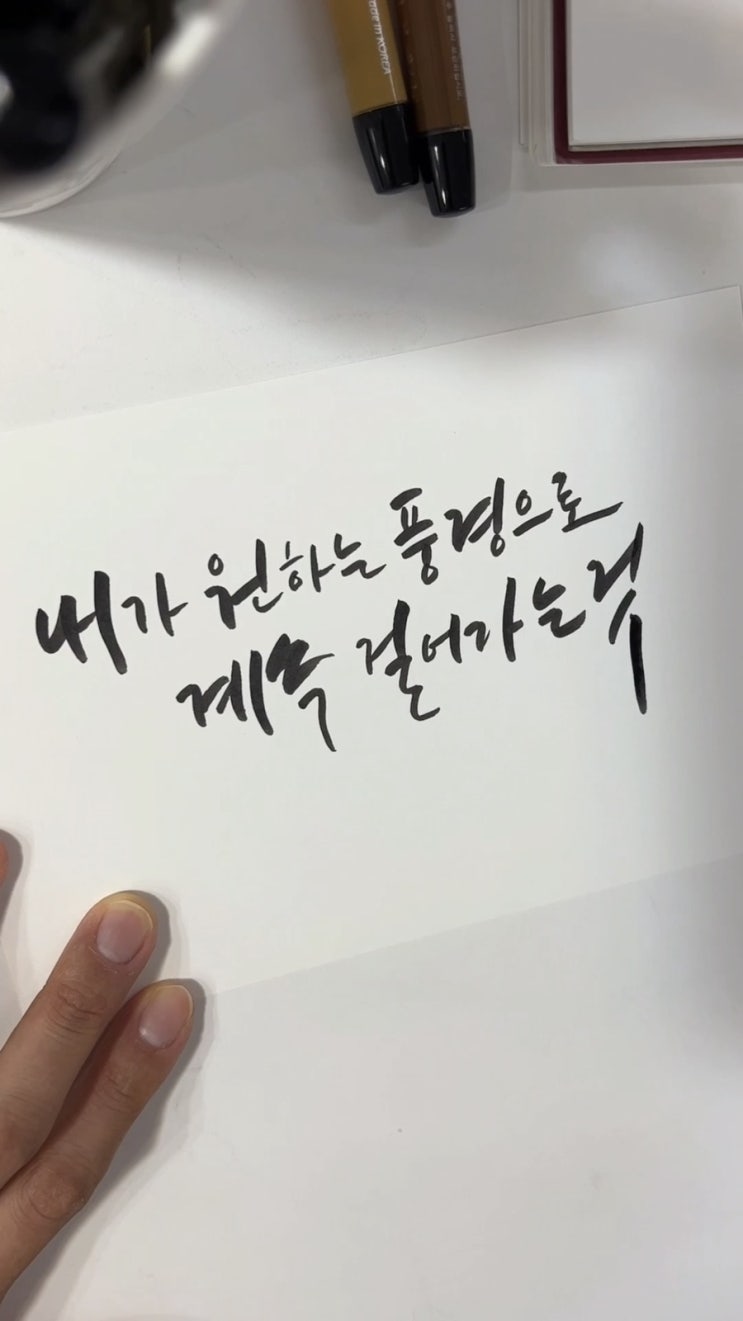 MADE IN KOREA
내가 원하는 풍경으로
계속 걸어가는 것